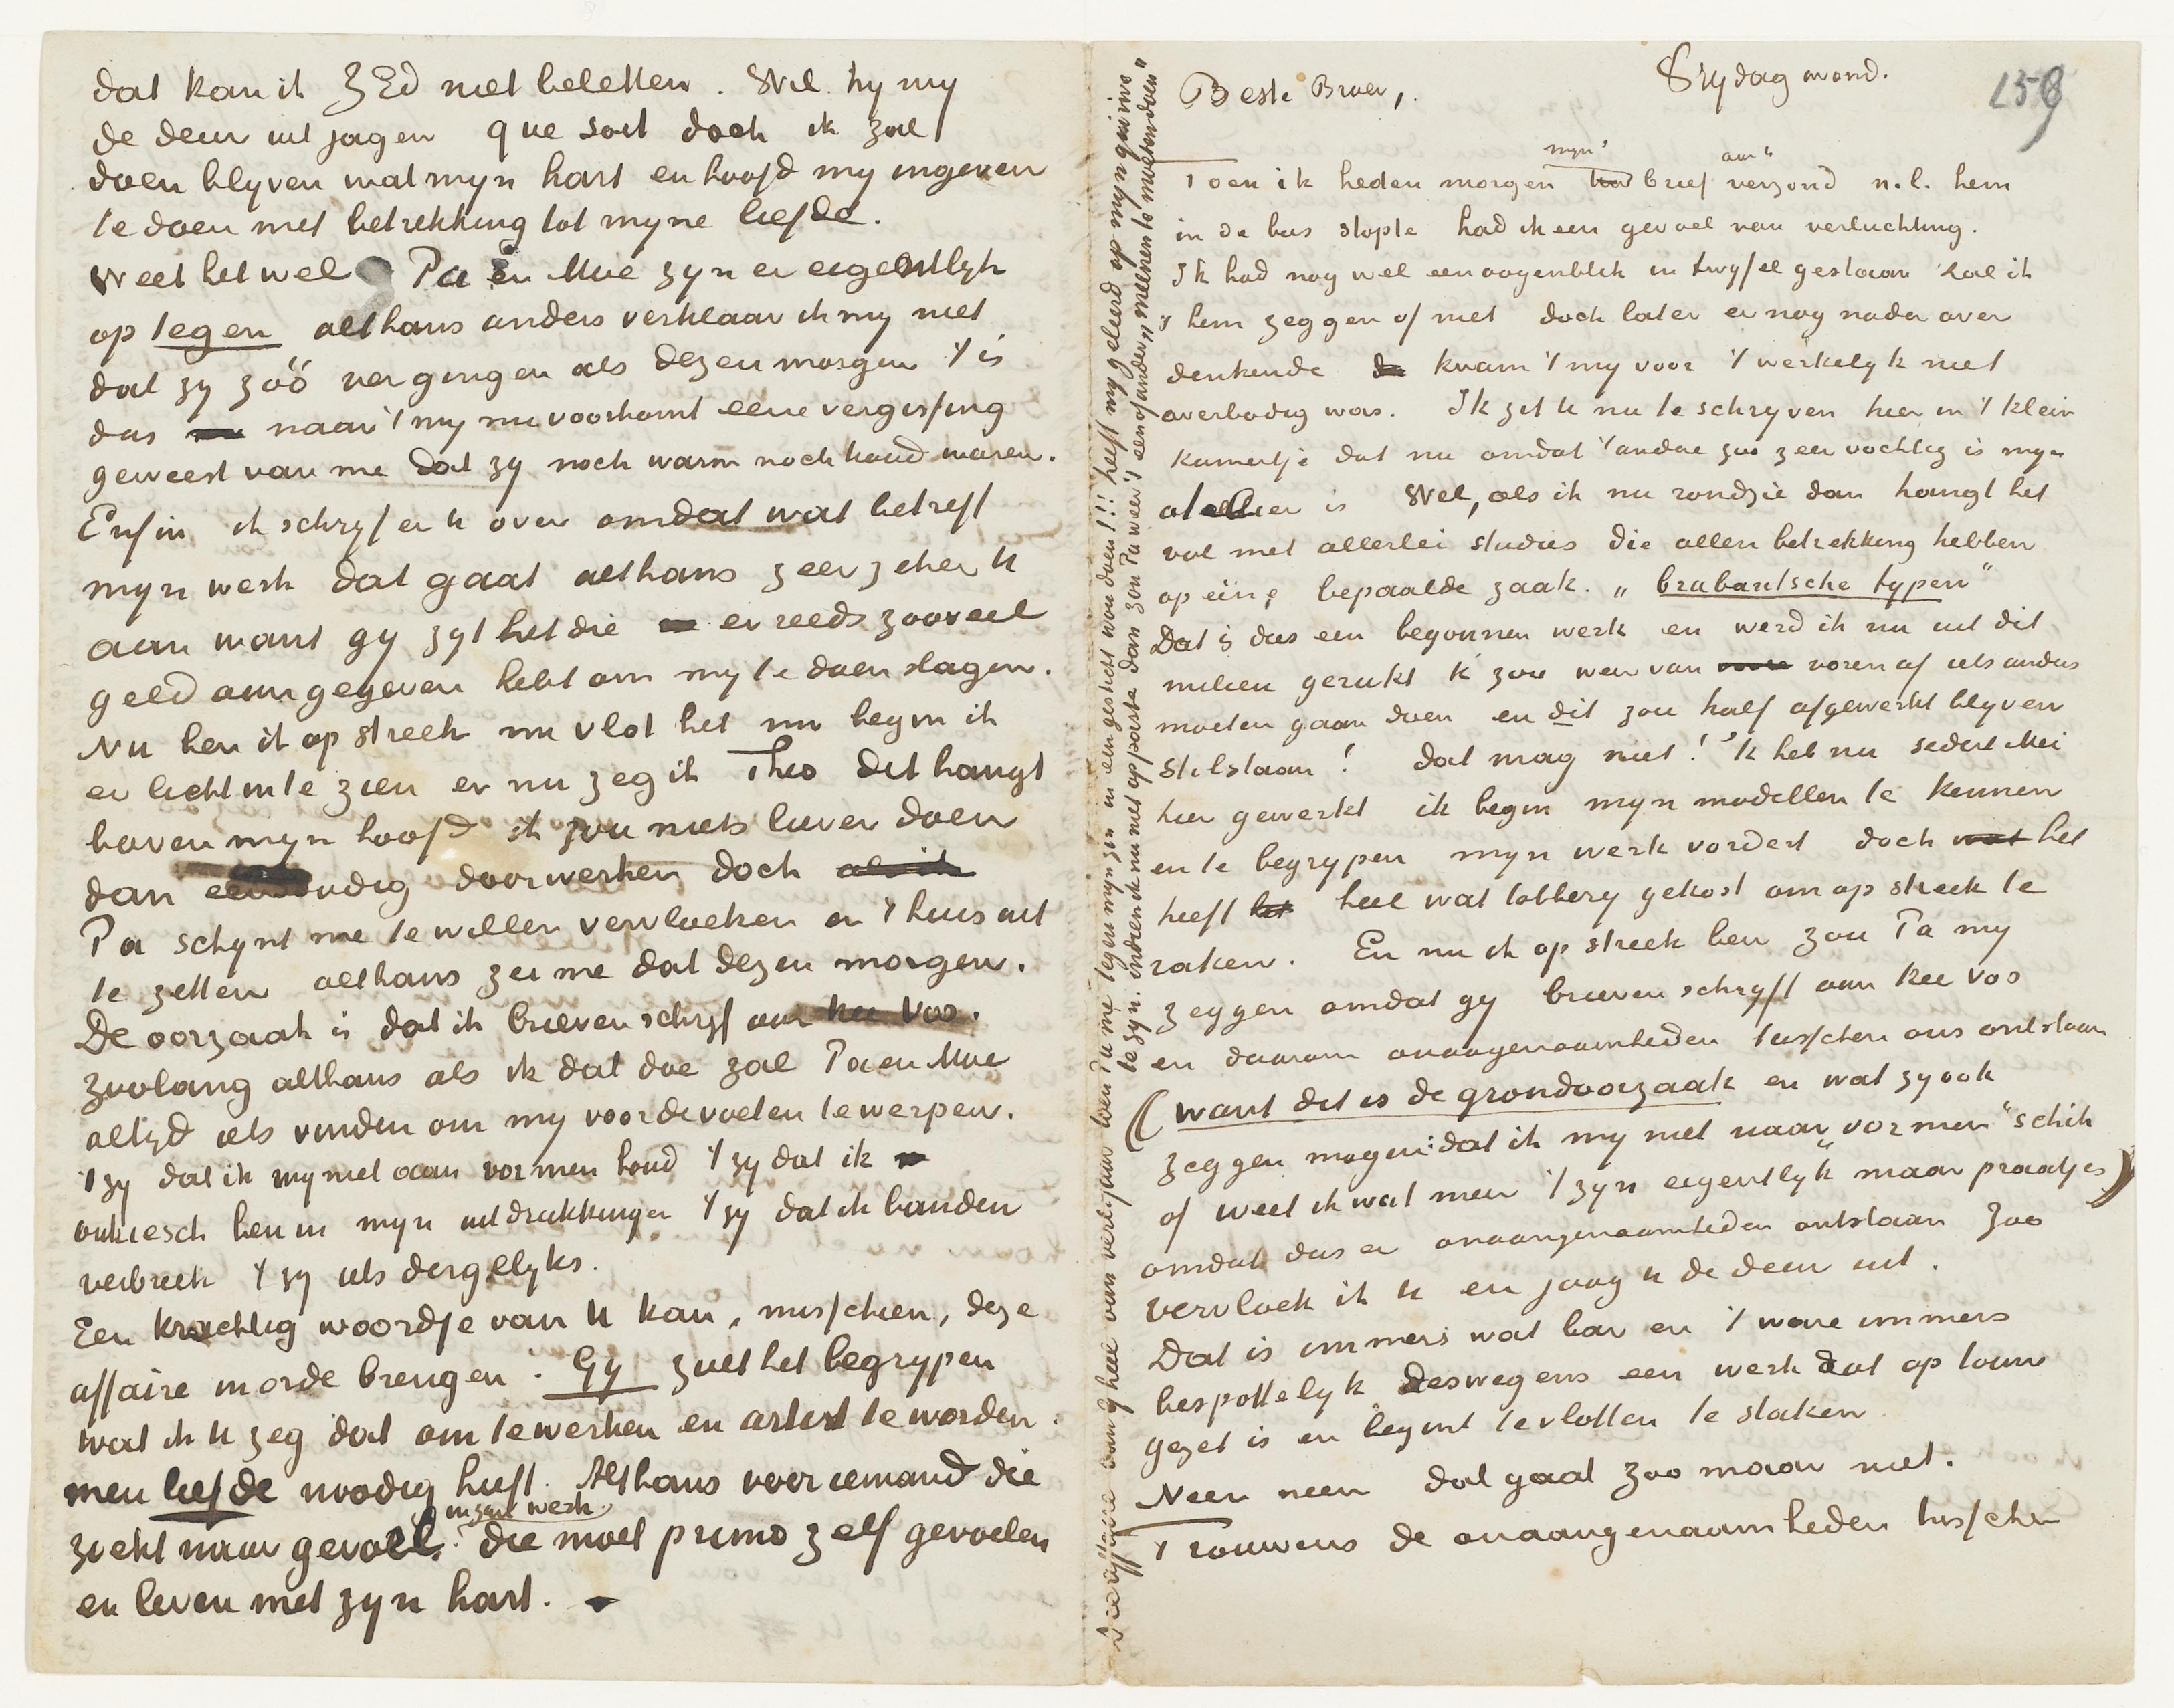 dat kan ik ZEd niet beletten. Wil hy my
de deur uit jagen que soit doch ik zal
doen blyven wat myn hart en hoofd my ingeven
te doen met betrekking tot myne liefde.
Weet het wel Pa en Moe zyn er eigentlyk
op tegen althans anders verklaar ik my niet
dat zy zóó ver gingen als dezen morgen 't is
dus naar 't my nu voorkomt eene vergissing
geweest van me dat zy noch warm noch koud waren.
Enfin ik schryf er u over omdat wat betreft
myn werk dat gaat althans zeer zeker u
aan want gy zyt het die er reeds zooveel
geld aan gegeven hebt om my te doen slagen.
Nu ben ik op streek nu vlot het nu begin ik
er licht in te zien en nu zeg ik Theo dit hangt
boven myn hoofd ik zou niets liever doen
dan eenvoudig doorwerken doch als ik
Pa schynt me te willen vervloeken en 't huis uit
te zetten althans zei me dat dezen morgen.
De oorzaak is dat ik brieven schryf aan Kee Vos.
Zoolang althans als ik dat doe zal Pa en Moe
altyd iets vinden om my voor de voeten te werpen.
't zy dat ik my niet aan vormen houd 't zy dat ik
onkiesch ben in myn uitdrukkingen 't zy dat ik banden
verbreek 't zy iets dergelyks.
Een krachtig woordje van u kan, misschien, deze
affaire in orde brengen. Gy zult het begrypen
wat ik u zeg dat om te werken en artist te worden
men liefde noodig heeft. Althans voor iemand die
zoekt naar gevoel in zyn werk die moet primo zelf gevoelen
en leven met zyn hart.
159
Vrydag avond.
Beste Broer,
Toen ik heden morgen myn brief aan u verzond n.l. hem
in de bus stopte had ik een gevoel van verluchting.
Ik had nog wel een oogenblik in twyfel gestaan zal ik
't hem zeggen of niet doch later er nog nader over
denkende kwam 't my voor 't werkelyk niet
overbodig was. Ik zit u nu te schryven hier in 't klein
kamertje dat nu omdat 't andere zoo zeer vochtig is myn
atelier is Wel, als ik nu rondzie dan hangt het
vol met allerlei studies die allen betrekking hebben
op één, bepaalde zaak. „brabantsche typen"
Dat is dus een begonnen werk en werd ik nu uit dit
milieu gerukt ik zou weer van voren af iets anders
moeten gaan doen en dit zou half afgewerkt blyven
stilstaan! dat mag niet! 'k heb nu sedert Mei
hier gewerkt ik begin myn modellen te kennen
en te begrypen myn werk vordert doch het
heeft heel wat tobbery gekost om op streek te
raken. En nu ik op streek ben zou Pa my
zeggen omdat gy brieven schryft aan Kee Vos
en daarom onaangenaamheden tusschen ons ontstaan
(want dit is de grondoorzaak en wat zy ook
zeggen mogen: dat ik my niet naar „vormen" schik
of weet ik wat meer 't zyn eigentlyk maar praatjes)
omdat dus er onaangenaamheden ontstaan zoo
vervloek ik u en jaag u de deur uit.
Dat is immers wat bar en 't ware immers
bespottelyk deswegens een werk dat op touw
gezet is en begint te vlotten te staken
Neen neen dat gaat zoo maar niet.
Trouwens de onaangenaamheden tusschen
Die affaire aan gy heel van verleden jaar toen Pa me tegen myn zin in een gesticht wou doen!!! heeft my geleerd op myn qui vive
te zyn. indien ik nu niet oppaste dan zou Pa weer 't een of ander „meenen te moeten doen"